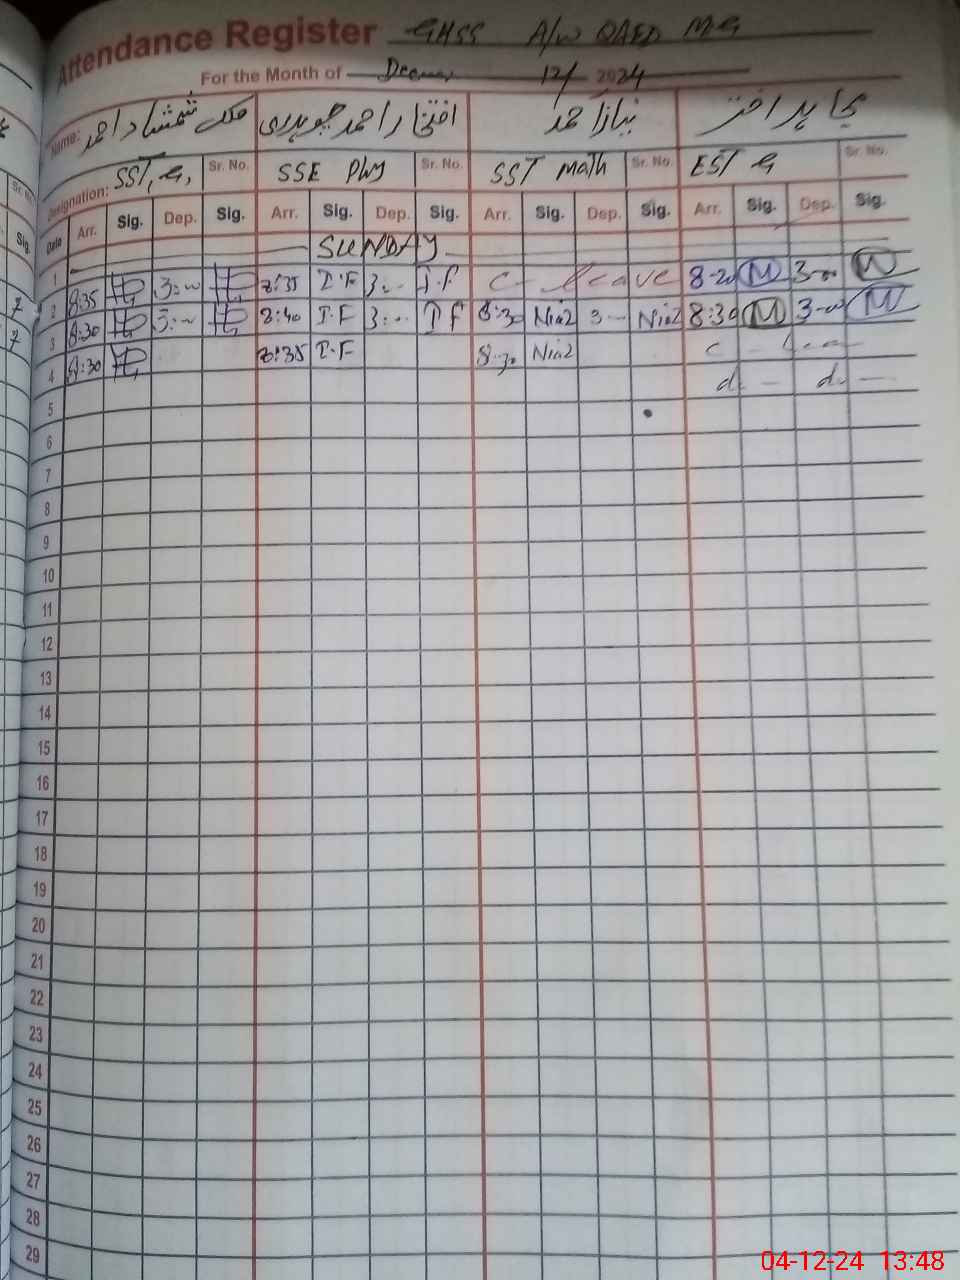 Attendance Register GHSS A/W QAED MG
For the Month of 12/ 2024
Name: ملک شمشاد احمد افتخار احمد چوہدری نیاز احمد اختر
Designation: SST, G, Sr. No. SSE Phy Sr. No. SST math Sr. No. EST G Sr. No.
Date Arr. Sig. Dep. Sig. Arr. Sig. Dep. Sig. Arr. Sig. Dep. Sig. Arr. Sig. Dep. Sig.
1 SUNDAY
2 8:35 3:00 8:35 I.F 3:00 I.F C- leave 8-20 M 3-00 M
3 8:30 3:00 8:40 I.F 3:00 I F 8:30 Niaz 3- Niaz 8:30 M 3-00 M
4 8:30 8:35 I.F 8:30 Niaz
5
6
7
8
9
10
11
12
13
14
15
16
17
18
19
20
21
22
23
24
25
26
27
28
29
04-12-24 13:48